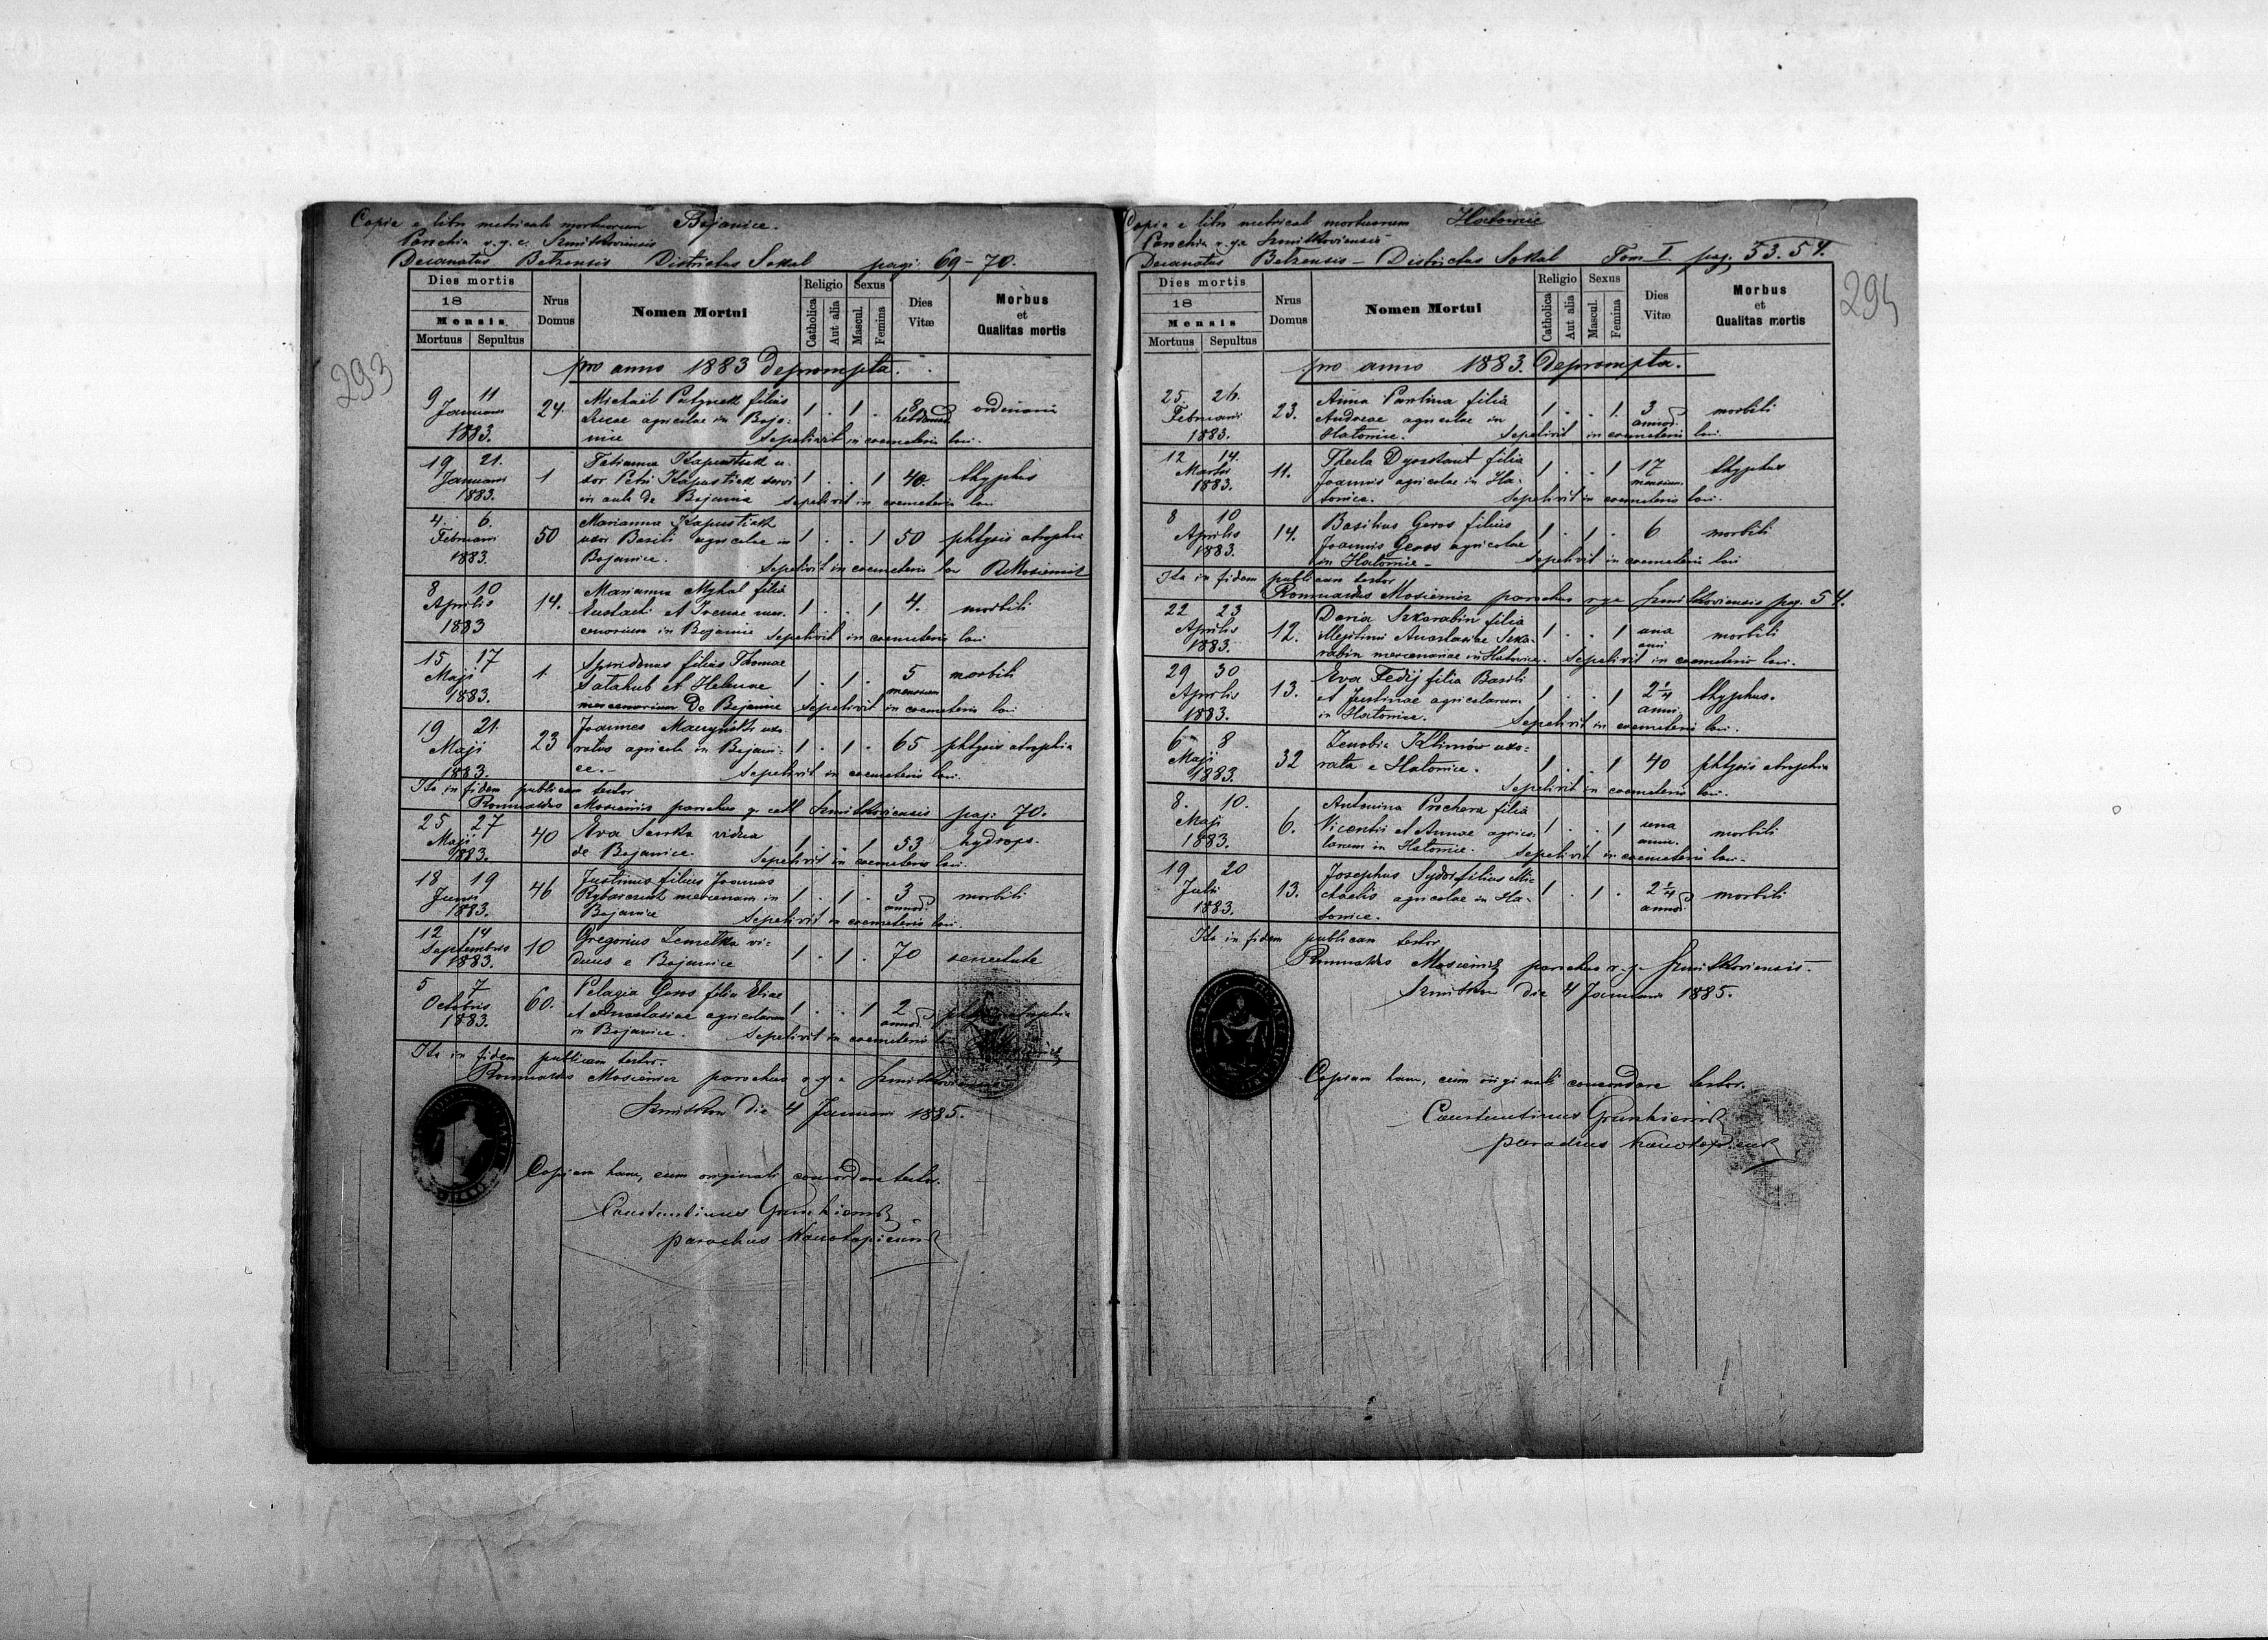 Copia e libri metricali mortuorum Bojanice.
Parochia r. g. c. Szmitkoviensis
Decanatus Belzensis Districtus Sokal pagi: 69-70.
293
Dies mortis
18
Mensis
Mortuus Sepultus
Nrus Domus
Nomen Mortui
Religio
Catholica Aut alia
Sexus
Mascul. Femina
Dies Vitæ
Morbus et Qualitas mortis
pro anno 1883 depromta.
9 11 Januarii 1883. 24. Michail filius
Lucae agricolae in Boja- 1 . 1 . 8 hebdomad ordinaria
nice Sepelivit in coemeterio loci.
19 21. Januarii 1883. 1 Tatianna Kapustiak u-
xor Petri Kapustiak servi 1 . . 1 40. thyphus
in aula de Bojanice Sepelivit in coemeterio loci
4. 6. Februarii 1883. 50 Marianna Kapustiak
uxor Basili agricolae in 1 . . 1 50 phtysis atrophia
Bojanice. Sepelivit in coemeterio loci RMosiewicz
8 10 Aprilis 1883 14. Marianna Myhal filia
Eustachi et Irenae mer- 1 . . 1 4. morbili
cenariorum in Bojanice Sepelivit in coemeterio loci
15 17 Maji 1883. 1. Spiridonus filius Thomae
Satahub et Helenae 1 . 1 . 5 mensium morbili
mercenariorum de Bojanice Sepelivit in coemeterio loci
19 21. Maji 1883. 23 Joannes uxo-
ratus agricola in Bojani- 1 . 1 . 65 phtysis atrophia
ce.- Sepelivit in coemeterio loci.
Ita in fidem publicam testor
Romualdus Mosiewicz parochus gr. cath Szmitkoviensis pag: 70.
25 27 Maji 1883. 40 Eva vidua
de Bojanice. 1 . . 1 53 hydrops.
Sepelivit in coemeterio loci.
18 19 Junii 1883. 46 Justinus filius Joannis
mercenarii in 1 . 1 . 3 annor. morbili
Bojanice Sepelivit in coemeterio loci.
12 14 Septembris 1883. 10 Gregorius vi-
duus e Bojanice 1 . 1 . 70 senectute
5 7 Octobris 1883. 60. Pelagia Geros filia Eliae
et Anastasiae agricolarum 1 . . 1 2 annor. phtysis atrophia
in Bojanice. Sepelivit in coemeterio
Ita in fidem publicam testor.
Romualdus Mosiewicz parochus r. g. c. Szmitkoviensis
Szmitkow die 4 Januarii 1885.
Copiam hanc, cum originali concordare testor.
Constantinus
parochus
Copia e libri metricali mortuorum Hatowice
Parochia r. g. c. Szmitkoviensis
Decanatus Belzensis - Districtus Sokal Tom I. pag. 53. 54.
294
Dies mortis
18
Mensis
Mortuus Sepultus
Nrus Domus
Nomen Mortui
Religio
Catholica Aut alia
Sexus
Mascul. Femina
Dies Vitæ
Morbus et Qualitas mortis
pro anno 1883. depromta.
25. 26. Februarii 1883. 23. Anna filia
Andreae agricolae in 1 . . 1. 3 annor. morbili
Hatowice. Sepelivit in coemeterio loci.
12 14. Martii 1883. 11. Thecla filia
Joannis agricolae in Ha- 1 . . 1 17 mensium. thyphus
towice. Sepelivit in coemeterio loci.
8 10 Aprilis 1883. 14. Basilius Geros filius
Joannis Geros agricolae 1 . 1 . 6 morbili
in Hatowice - Sepelivit in coemeterio loci
Ita in fidem publicam testor
Romualdus Mosiewicz parochus r. g. c. Szmitkoviensis pag. 54.
22 23 Aprilis 1883. 12. Daria Szkarabin filia
illegitima Anastasiae Szka- 1 . . 1 una anni morbili
rabin mercenariae in Hatowice. Sepelivit in coemeterio loci.
29 30 Aprilis 1883. 13. Eva Fedij filia Basili
et Justinae agricolarum 1 . . 1 2 1/4 anni thyphus.
in Hatowice. Sepelivit in coemeterio loci.
6 8 Maji 1883. 32 Zenobia Klimow uxo-
rata e Hatowice. 1 . . 1 40 phtysis atrophia
Sepelivit in coemeterio loci.
8. 10. Maji 1883. 6. Antonina Prochera filia
Vicentii et Annae agrico- 1 . . 1 una anni. morbili
larum in Hatowice. Sepelivit in coemeterio loci.
19 20 Julii 1883. 13. Josephus Sydor filius Mi-
chaelis agricolae in Ha- 1 . 1 . 2 1/4 annor. morbili
towice.
Ita in fidem publicam testor
Romualdus Mosiewicz parochus r. g. c. Szmitkoviensis.
Szmitkow die 4 Januarii 1885.
Copiam hanc, cum originali concordare testor.
Constantinus
parochus